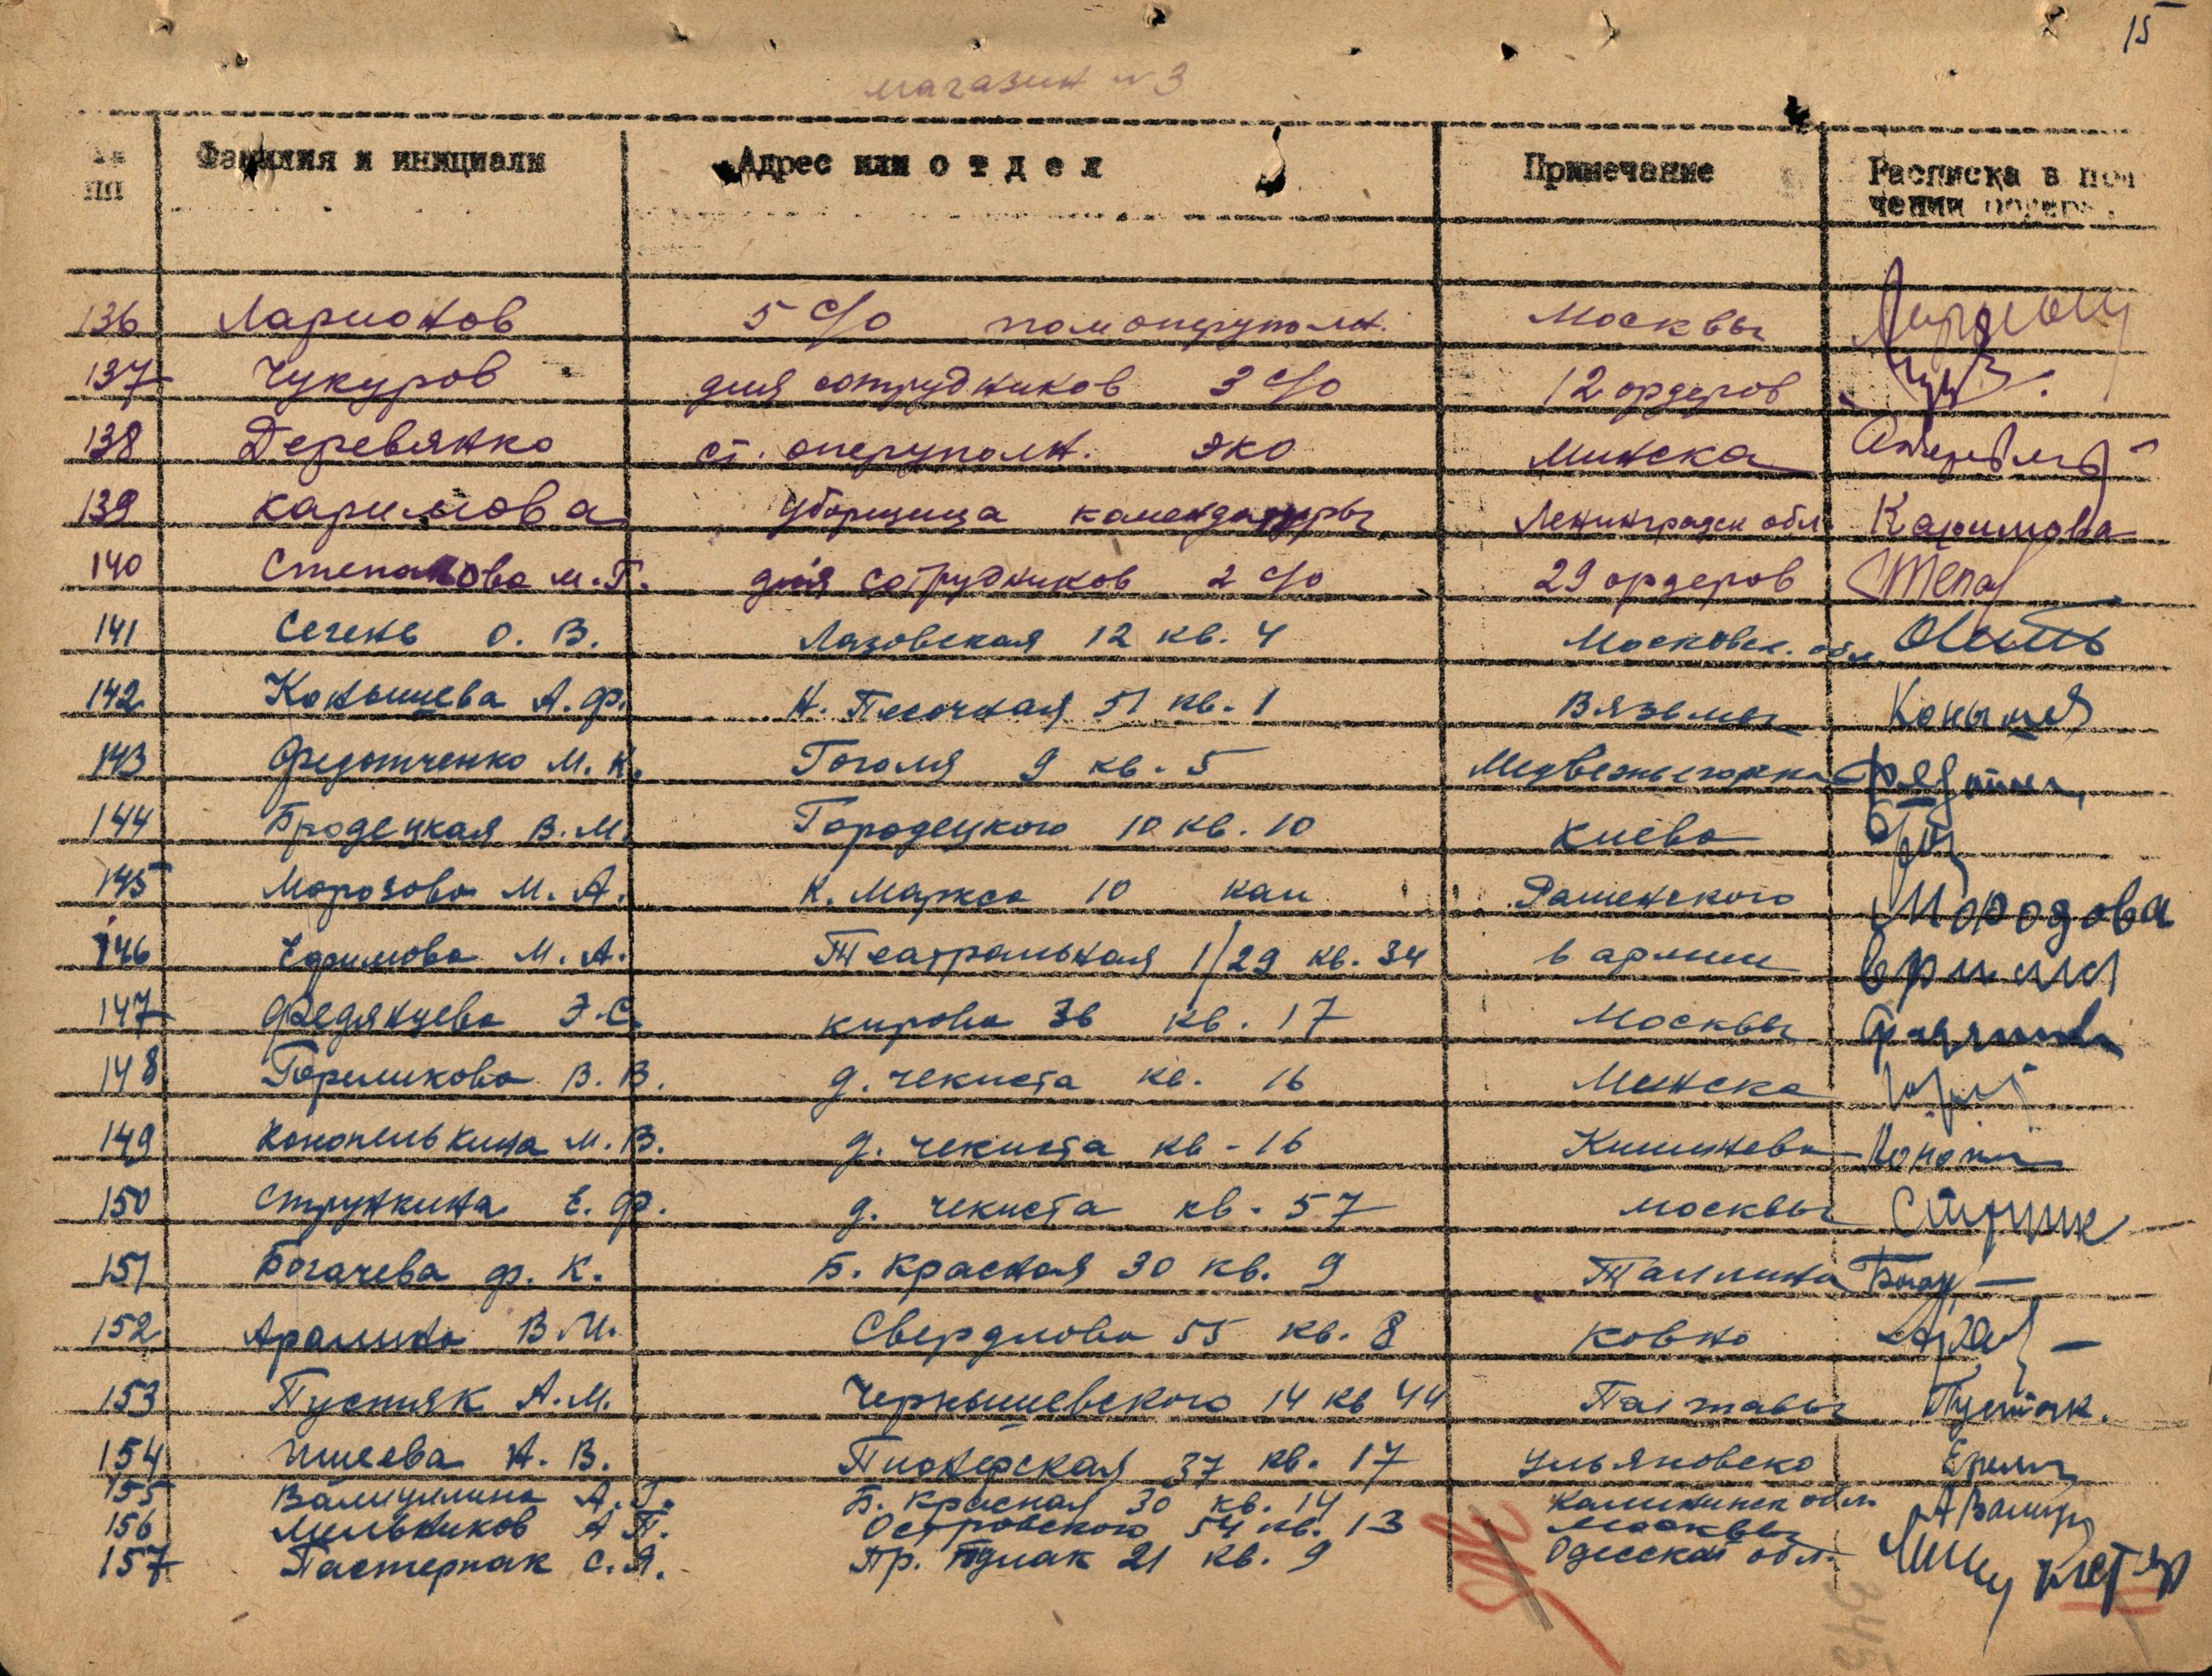 15
магазин № 3
№№ Фамилия и инициали Адрес или отдел Примечание Расписка в пол
пп чении ордера
136 Ларионов 5 с/о помоперуполн. Москвы
137 Чукуров для сотрудников 3 с/о 12 ордеров
138 Деревянко ст. оперуполн. ЭКО Минска
139 Каримова уборщица комендатуры Ленинградск обл. Каримова
140 Степанова М.Г. для сотрудников 2 с/о 29 ордеров Степа
141 Сегень О. В. Лазовская 12 кв. 4 Московск. обл.
142 Конышева А.Ф. Н. Песочная 51 кв. 1 Вязьмы Коныше
143 Федотченко М. К. Гоголя 9 кв. 5 Медвежьегорка
144 Бродецкая В.М. Городецкого 10 кв. 10 Киева
145 Морозова М. А. К. Маркса 10 кан Раменского Мородова
146 Ефимова М. А. Театральная 1/29 кв. 34 в армии
147 Федянцева Э.С. Кирова 36 кв. 17 Москвы
148 Горшкова В. В. д. чекиста кв. 16 Минска
149 Конопелькина М.В. д. чекиста кв - 16 Кишинева
150 Стрункина Е. Ф. д. чекиста кв. 57 Москвы
151 Богачева Ф. К. Б. Красная 30 кв. 9 Таллина Богач
152 Арамина В.М. Свердлова 55 кв. 8 Ковно
153 Пустяк А.М. Чернышевского 14 кв 44 Полтавы Пустяк.
154 А. В. Пионерская 37 кв. 17 Ульяновска
155 Валиуллина А.Г. Б. Красная 30 кв. 14 Калининск обл.
156 Мильников А П. Островского 54 кв. 13 Москвы
157 Пастернак С.Я. Пр. 21 кв. 9 Одесской обл.
345